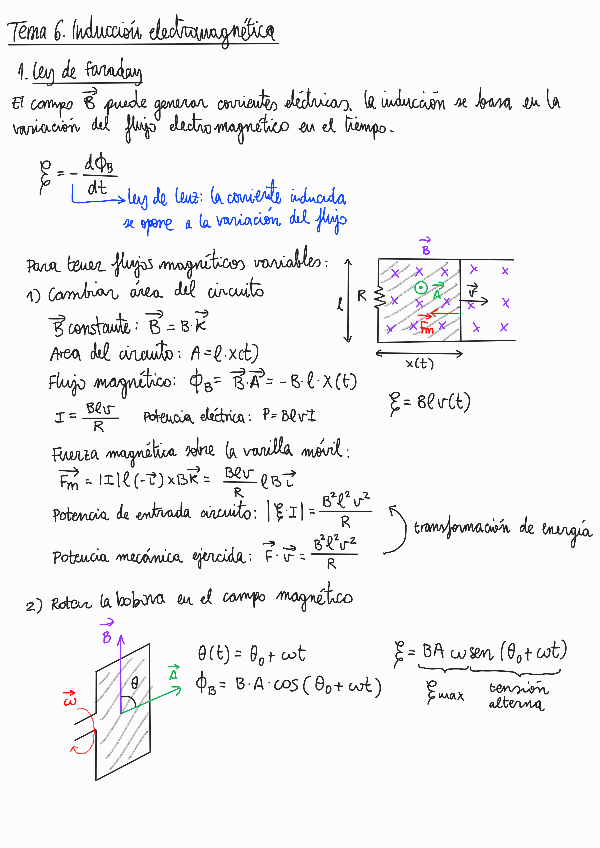 Tema 6. Inducción electromagnética
1. Ley de Faraday
El campo B⃗ puede generar corrientes eléctricas. La inducción se basa en la
variación del flujo electromagnético en el tiempo.
ξ = - dϕ_B / dt
Ley de Lenz: la corriente inducida
se opone a la variación del flujo
Para tener flujos magnéticos variables:
1) Cambiar área del circuito
B⃗ constante: B⃗ = B·K⃗
Area del circuito: A = l·x(t)
Flujo magnético: ϕ_B = B⃗·A⃗ = -B·l·x(t)
I = Blv / R Potencia eléctrica: P = BlvI
B⃗
x x x x x
R
l
A⃗
v⃗
x x x x
F⃗m
x x x x x
x(t)
ξ = Blv(t)
Fuerza magnética sobre la varilla móvil:
F⃗m = |I|l(-ı⃗)×BK⃗ = Blv / R lBı⃗
Potencia de entrada circuito: |ξ·I| = B²l²v² / R
Potencia mecánica ejercida: F⃗·v⃗ = B²l²v² / R
transformación de energía
2) Rotar la bobina en el campo magnético
B⃗
θ
A⃗
ω⃗
θ(t) = θ₀ + ωt
ϕ_B = B·A·cos(θ₀ + ωt)
ξ = BAω sen(θ₀ + ωt)
ξmax tensión
alterna